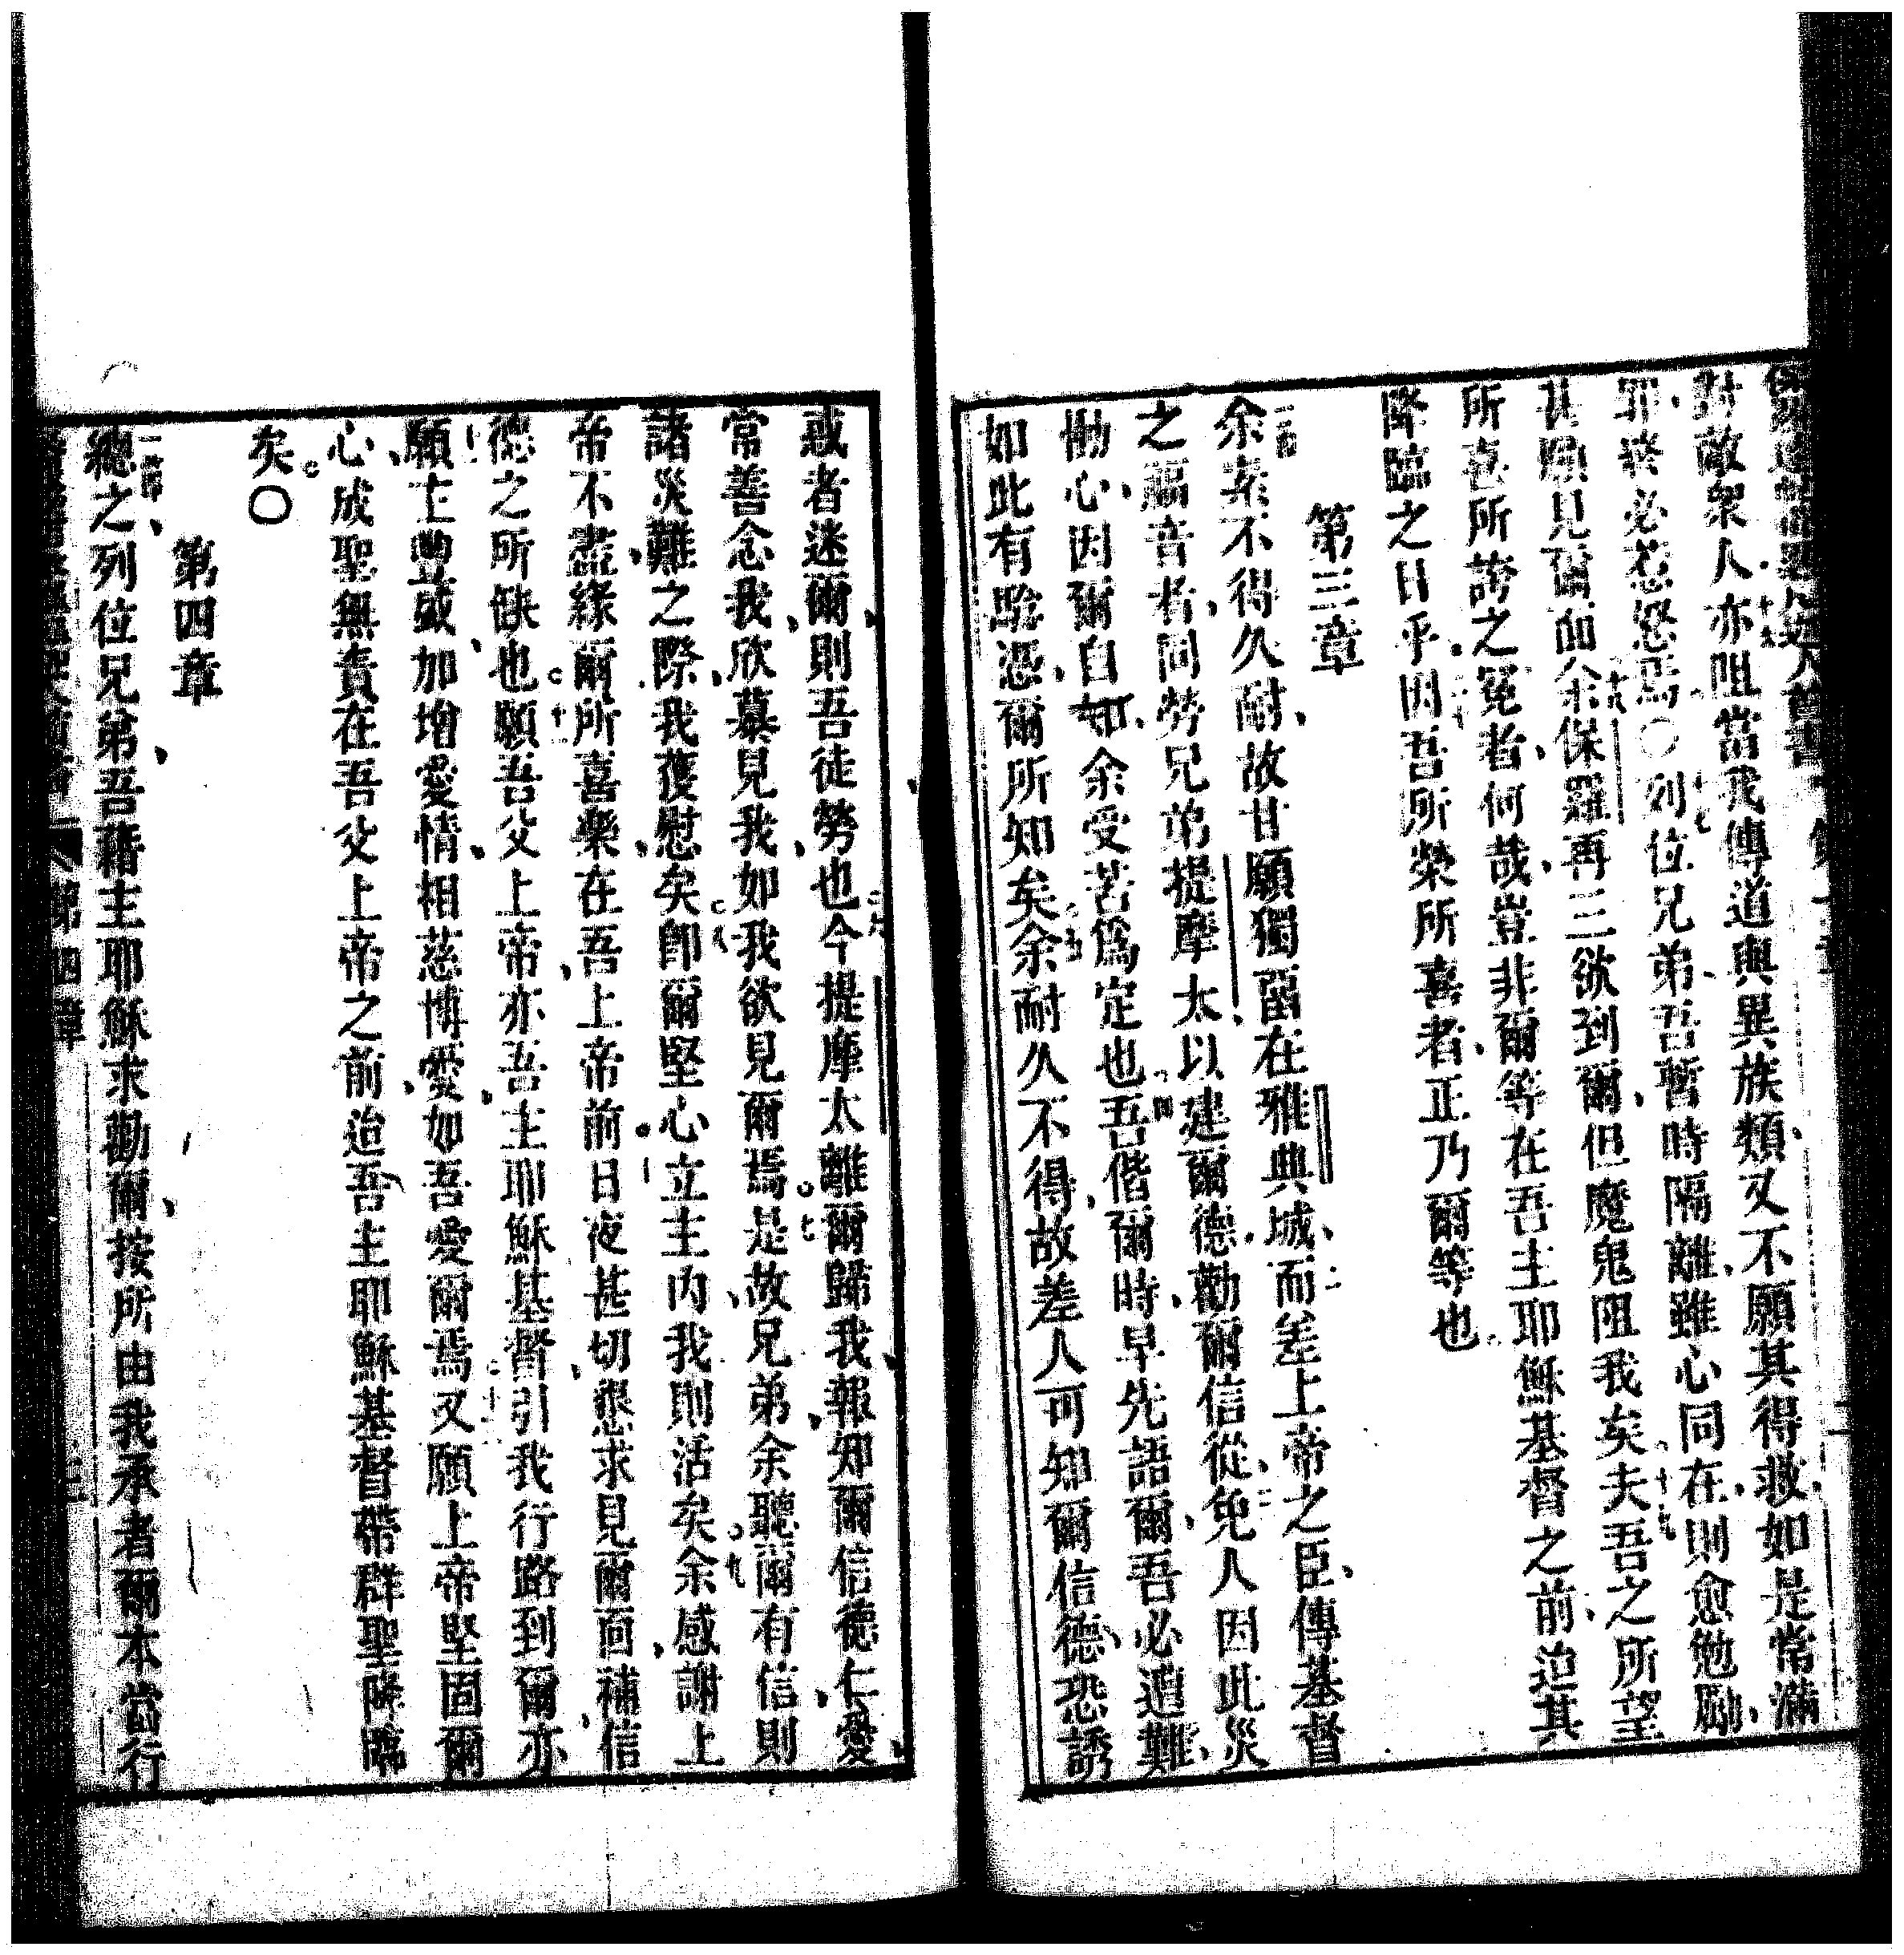 對敵衆人亦阻當我傳道與異族類又不願其得救如是常滿
罪終必惹怒焉〇列位兄弟吾暫時隔離雖心同在則愈勉勵
甚願見爾面余保羅再三欲到爾但魔鬼阻我矣夫吾之所望
所喜所誇之冕者何哉豈非爾等在吾主耶穌基督之前迨其
降臨之日乎因吾所榮所喜者正乃爾等也
第三章
余素不得久耐故甘願獨留在雅典城而差上帝之臣傳基督
之福音者同勞兄弟提摩太以建爾德勸爾信從免人因此災
慟心因爾自知余受苦爲定也吾偕爾時早先語爾吾必遭難
如此有驗憑爾所知矣余耐久不得故差人可知爾信德恐誘
惑者迷爾則吾徒勞也今提摩太離爾歸我報知爾信德仁愛
常善念我欣慕見我如我欲見爾焉是故兄弟余聽爾有信則
諸災難之際我獲慰矣卽爾堅心立主内我則活矣余感謝上
帝不盡緣爾所喜樂在吾上帝前日夜甚切懇求見爾面補信
德之所缺也願吾父上帝亦吾主耶穌基督引我行路到爾亦
願主豐盛加增愛情相慈博愛如吾愛爾焉又願上帝堅固爾
心成聖無責在吾父上帝之前迨吾主耶穌基督帶群聖降臨
矣〇
第四章
總之列位兄弟吾藉主耶穌求勸爾按所由我承者爾本當行